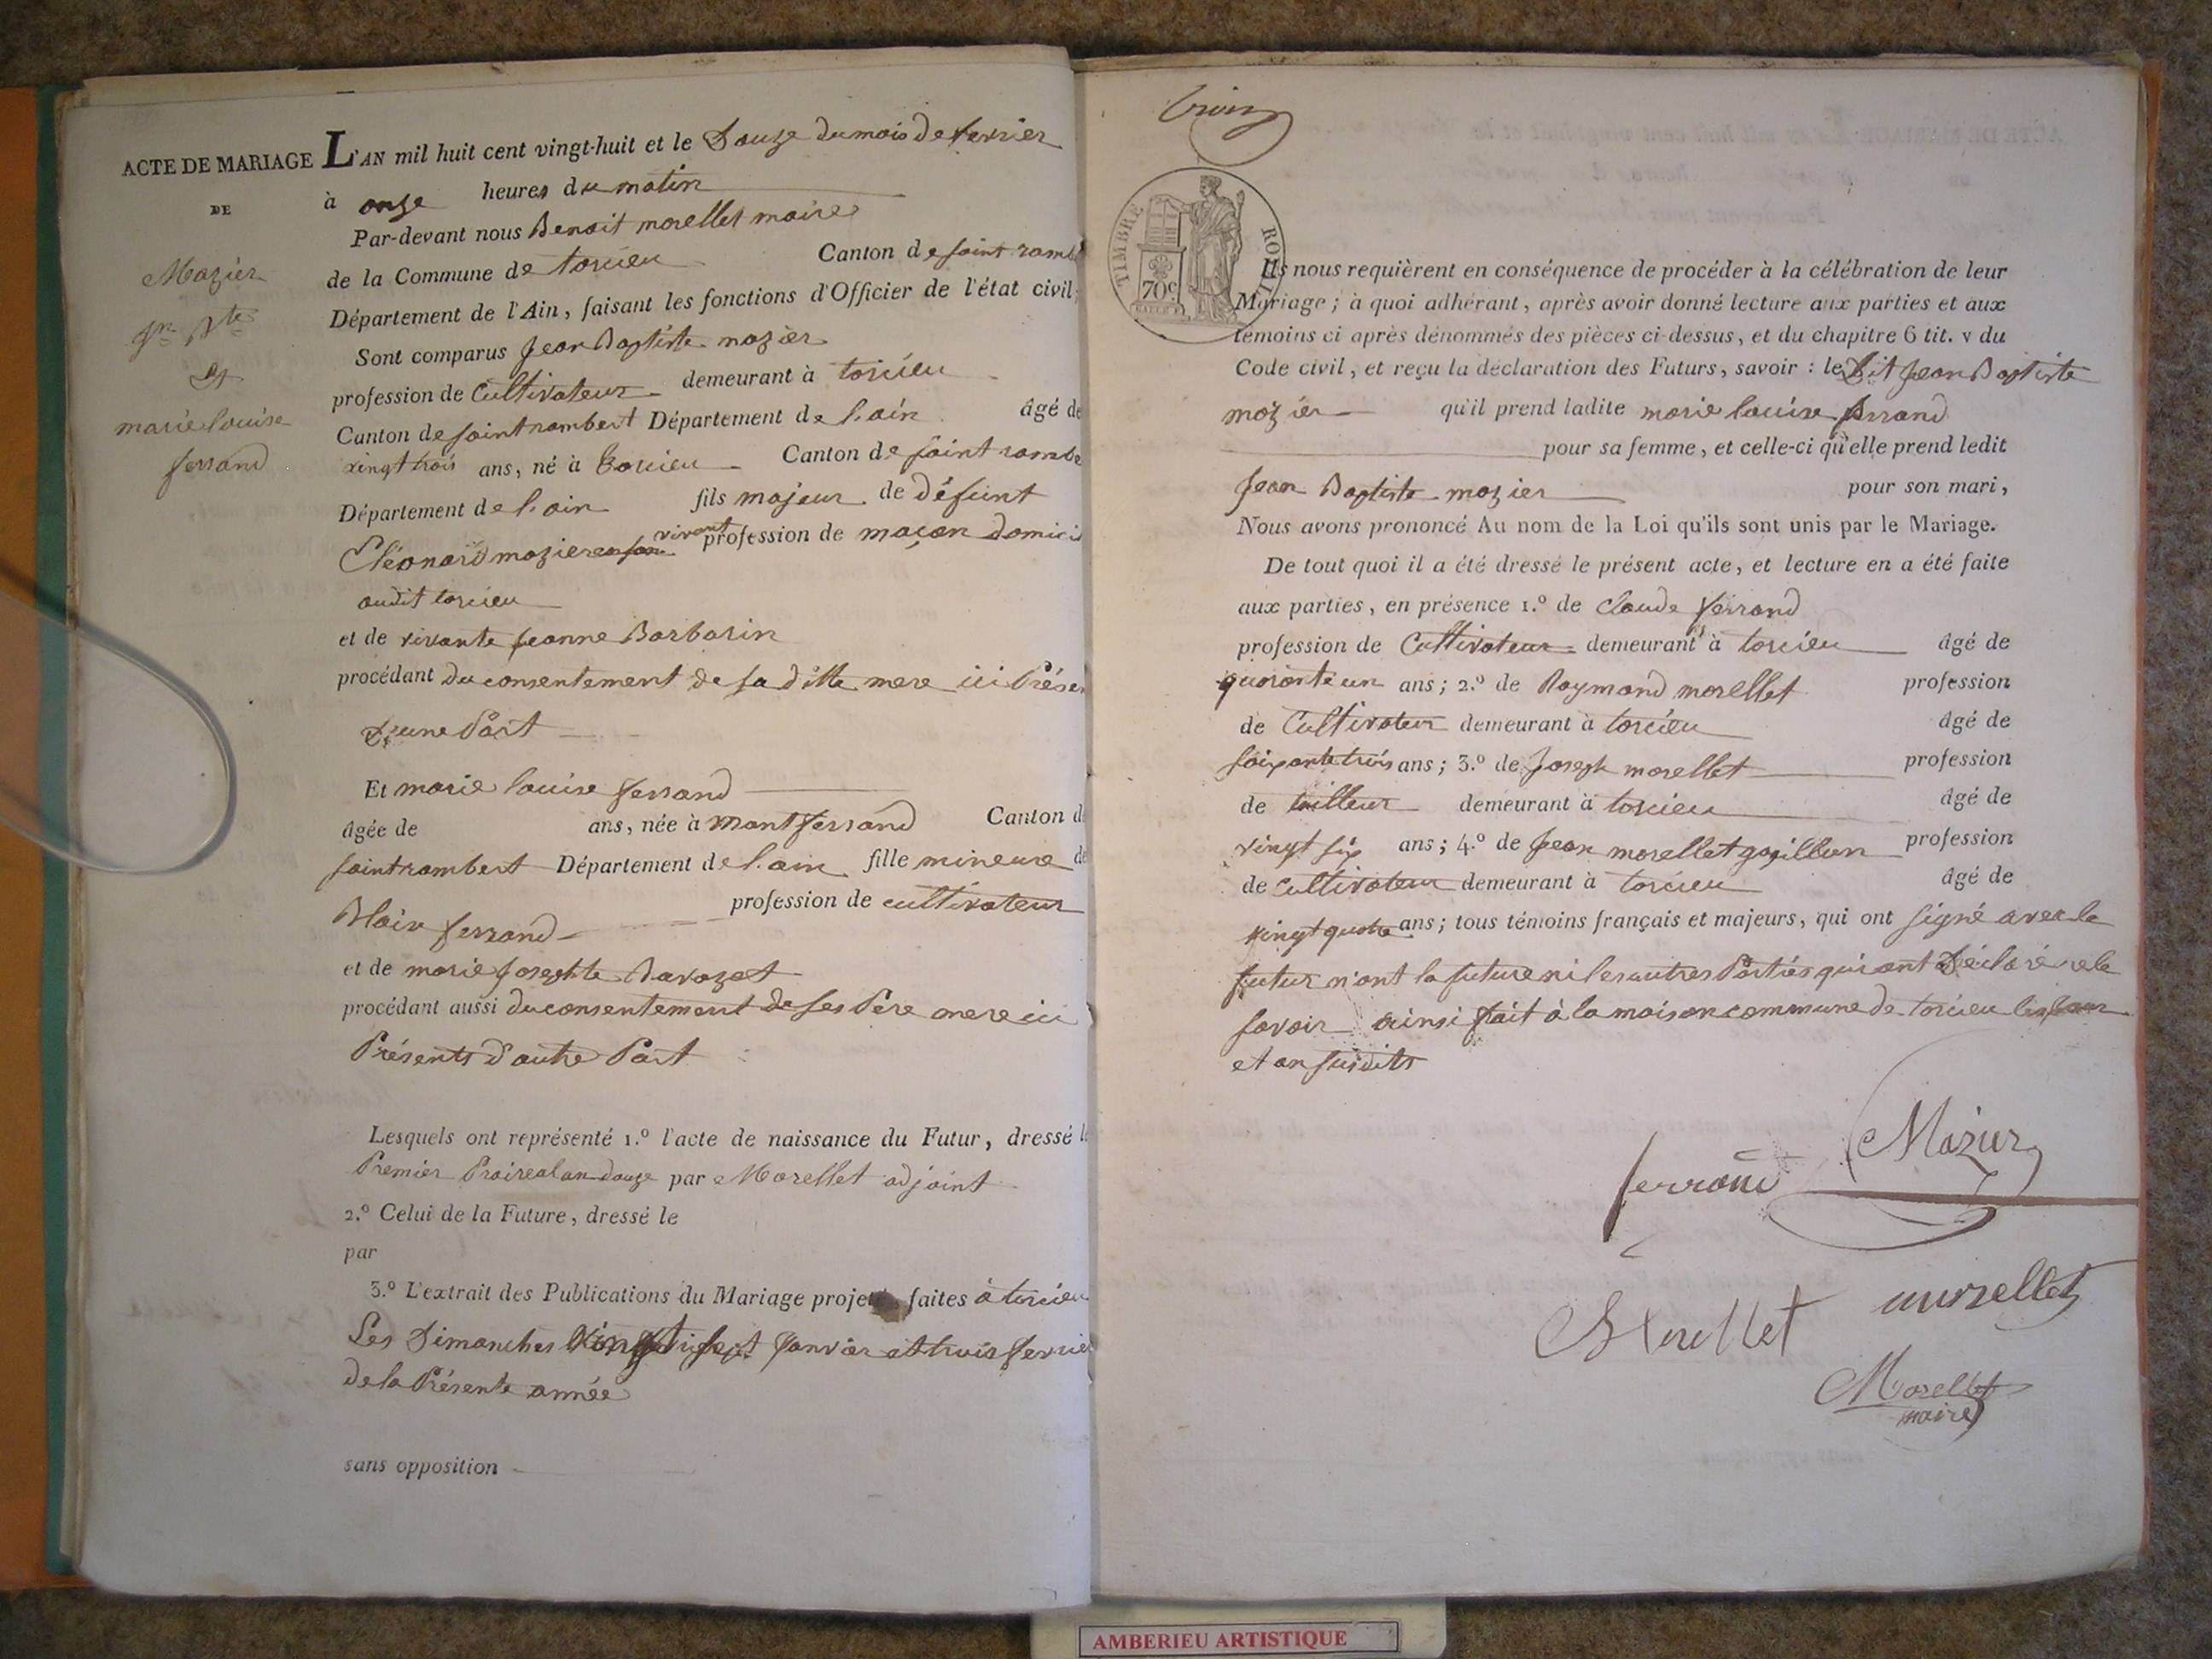 ACTE DE MARIAGE
DE
Mazier
Jn Bte
Et
marie louise
ferrand
L'AN mil huit cent vingt-huit et le Douze du mois de fevrier
à onze heures du matin
Par-devant nous Benoit morellet maire
de la Commune de torcieu Canton de saint ramb
Département de l'Ain, faisant les fonctions d'Officier de l'état civil,
Sont comparus Jean Baptiste mozier
profession de Cultivateur demeurant à torcieu
Canton de saint rambert Département de l'ain âgé de
vingt trois ans, né à torcieu Canton de saint rambe
Département de l'ain fils majeur de défunt
Cléonard mozier en son vivant profession de maçon domici
audit torcieu
et de vivante jeanne Barbarin
procédant du consentement de sa ditte mere ici Présen
d'une Part
Et marie louise ferrand
âgée de ans, née à montferrand Canton de
saint rambert Département de l'ain fille mineure de
Blaix ferrand profession de cultivateur
et de marie Josephte Bavozet
procédant aussi du consentement de ses Père mere ici
Présents d'autre Part
Lesquels ont représenté 1.º l'acte de naissance du Futur, dressé le
Premier Praireal an douze par Morellet adjoint
2.º Celui de la Future, dressé le
par
3.º L'extrait des Publications du Mariage projeté faites à torcieu
Les Dimanches vingt sept janvier et trois fevrier
de la Présente année
sans opposition
TIMBRE ROYAL
70c
Ils nous requièrent en conséquence de procéder à la célébration de leur
Mariage ; à quoi adhérant, après avoir donné lecture aux parties et aux
témoins ci après dénommés des pièces ci-dessus, et du chapitre 6 tit. v du
Code civil, et reçu la déclaration des Futurs, savoir : le Dit Jean Baptiste
mozier qu'il prend ladite marie louise ferrand
pour sa femme, et celle-ci qu'elle prend ledit
Jean Baptiste mozier pour son mari,
Nous avons prononcé Au nom de la Loi qu'ils sont unis par le Mariage.
De tout quoi il a été dressé le présent acte, et lecture en a été faite
aux parties, en présence 1.º de Claude ferrand
profession de Cultivateur demeurant à torcieu âgé de
quarante un ans ; 2.º de Raymond morellet profession
de Cultivateur demeurant à torcieu âgé de
soixante trois ans ; 3.º de Joseph morellet profession
de tailleur demeurant à torcieu âgé de
vingt six ans ; 4.º de Jean morellet profession
de Cultivateur demeurant à torcieu âgé de
vingt quatre ans ; tous témoins français et majeurs, qui ont signé avec le
futur n'ont la future ni les autres Parties qui ont Déclaré ne le
savoir ainsi fait à la maison commune de torcieu les jour
et an susdits
Mazier
ferrand
Morellet
morellet
Morellet
maire
AMBERIEU ARTISTIQUE